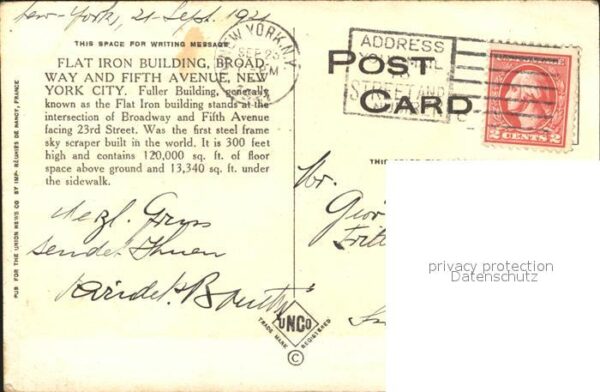 New-York, 21-Sept. 192
THIS SPACE FOR WRITING MESSAGE
FLAT IRON BUILDING, BROAD-
WAY AND FIFTH AVENUE, NEW
YORK CITY. Fuller Building, generally
known as the Flat Iron building stands at the
intersection of Broadway and Fifth Avenue
facing 23rd Street. Was the first steel frame
sky scraper built in the world. It is 300 feet
high and contains 120,000 sq. ft. of floor
space above ground and 13,340 sq. ft. under
the sidewalk.
Herzl. Gruss
sendet Ihnen
PUB FOR THE UNION NEWS CO BY IMP. RÉUNIES DE NANCY, FRANCE
NEW YORK, N.Y.
SEP 23
ADDRESS
YOUR MAIL
TO
STREET AND
POST
CARD
2 CENTS 2
THIS
Mr.
UNCO
TRADE MARK REGISTERED
©
privacy protection
Datenschutz